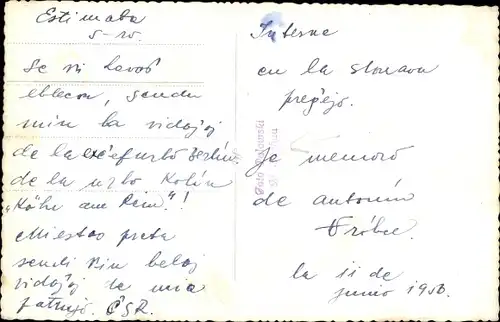 Estimata
s-ro.
Se vi havos
eblecon, sendu
min la vidaĵoj
de la ĉefurbo Berlin,
de la urbo Kolin
"Köhn am Rein"!
Mi estas preta
sendi vin belaj
vidaĵoj de mia
patrujo. ČSR.
Interne
en la slovava
preĝejo.
Je memoro
de antonín
la 11 de
junio 1958.
Foto